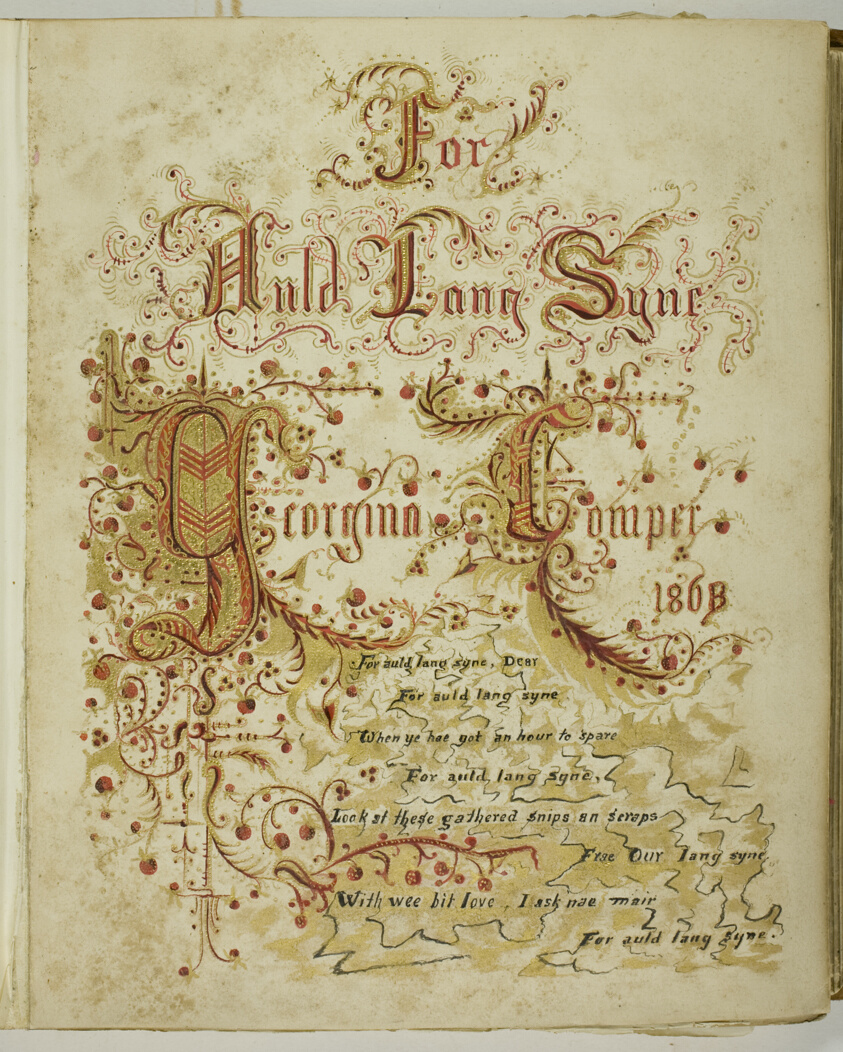 For
Auld Lang Syne
Georgina Comper
1868
For auld lang syne, Dear
For auld lang syne
When ye hae got an hour to spare
For auld lang syne,
Look at these gathered snips an scraps
Frae Our lang syne
With wee bit love, I ask nae mair
For auld lang syne.